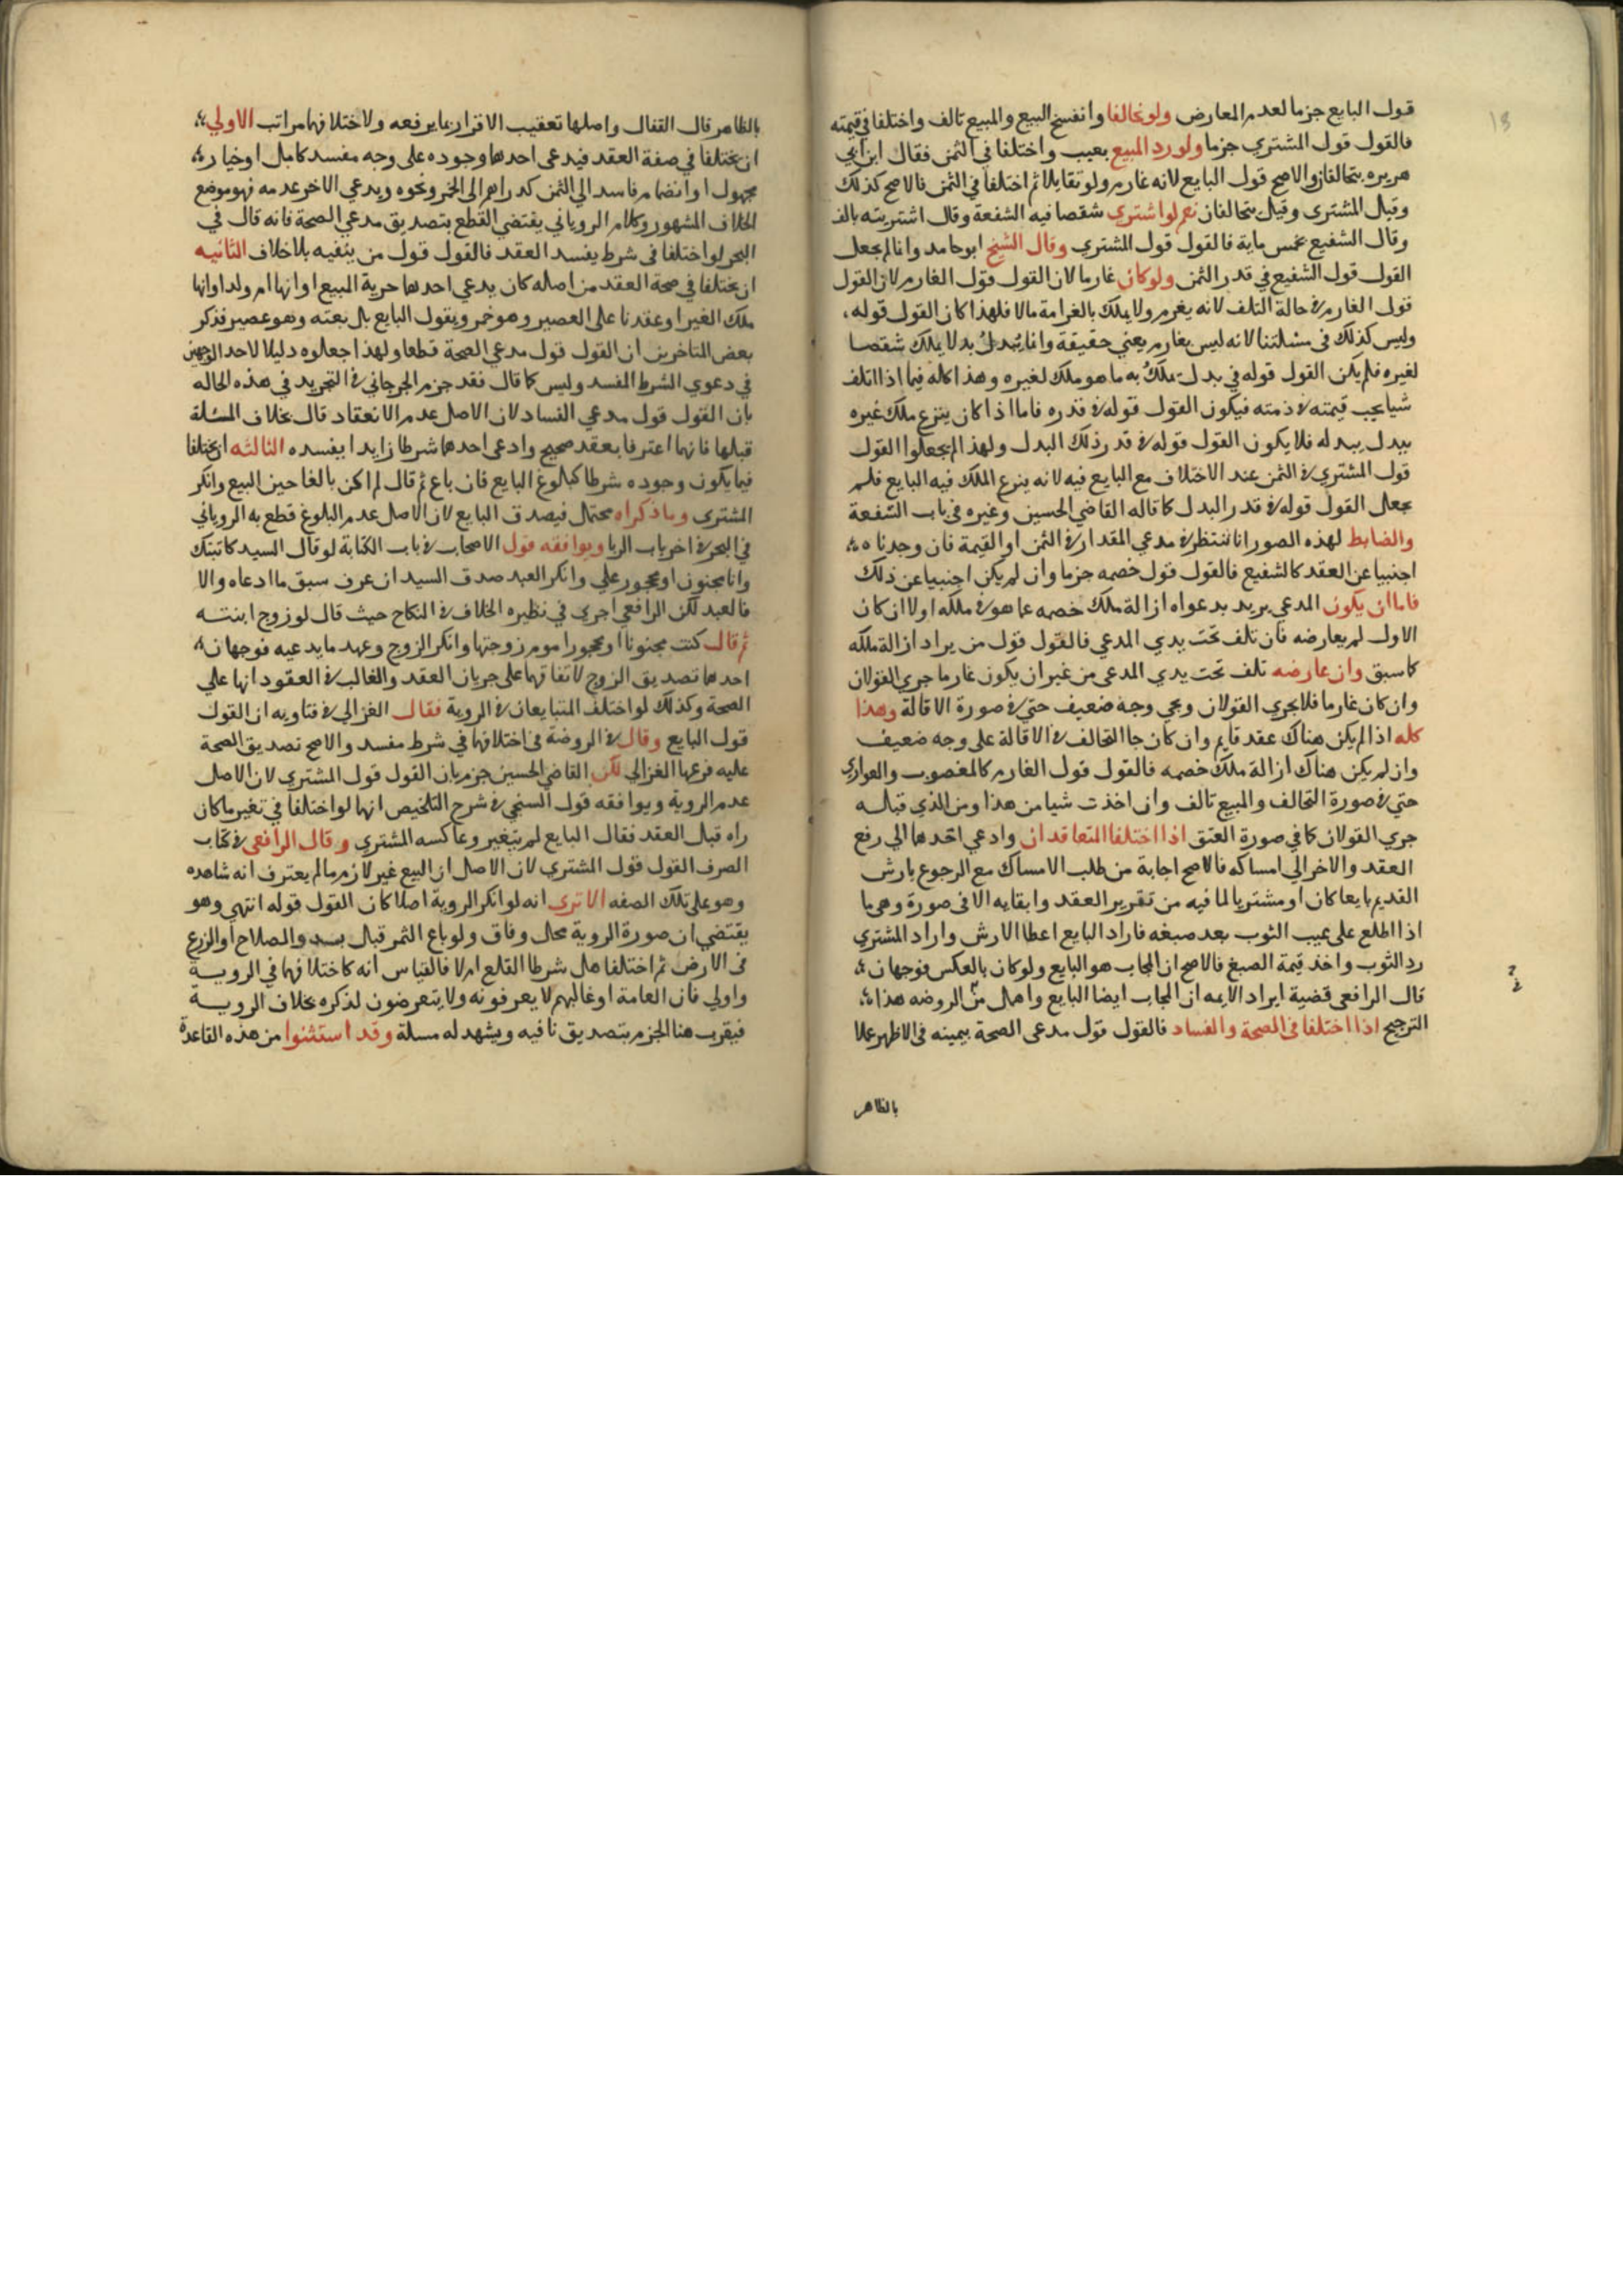 قول البايع جزما لعدم المعارض ولو تحالفا وانفسخ البيع والمبيع تالف واختلفا في قيمته
فالقول قول المشتري جزما ولو رد المبيع بعيب واختلفا في الثمن فقال ابن ابي
هريره يتحالفان والاصح قول البايع لانه غارم ولو تقايلا ثم اختلفا في الثمن فالاصح كذلك
وقيل المشتري وقيل يتحالفان نعم لو اشتري شقصا فيه الشفعة وقال اشتريته بالف
وقال الشفيع بخمس ماية فالقول قول المشتري وقال الشيخ ابو حامد وانما لم يجعل
القول قول الشفيع في قدر الثمن ولو كان غارما لان القول قول الغارم لان القول
قول الغارم في حالة التلف لانه يغرم ولا يملك بالغرامة مالا فلهذا كان القول قوله
وليس كذلك في مسئلتنا لانه ليس بغارم يعني حقيقة وانما يبدل بدلا يملك شقصا
لغيره فلم يكن القول قوله في بدل يملك به ما هو ملك لغيره وهذا كله فيما اذا اتلف
شيا يجب قيمته في ذمته فيكون القول قوله في قدره فاما اذا كان ينزع ملك غيره
ببدل يبدله فلا يكون القول قوله في قدر ذلك البدل ولهذا لم يجعلوا القول
قول المشتري في الثمن عند الاختلاف مع البايع فيه لانه ينزع الملك فيه البايع فلم
يجعل القول قوله في قدر البدل كما قاله القاضي الحسين وغيره في باب الشفعة
والضابط لهذه الصور انا ننتظر في مدعي المقدار في الثمن او القيمة فان وجدناه
اجنبيا عن العقد كالشفيع فالقول قول خصمه جزما وان لم يكن اجنبيا عن ذلك
فاما ان يكون المدعي يريد بدعواه ازالة ملك خصمه عما هو في ملكه اولا ان كان
الاول لم يعارضه فان تلف تحت يدي المدعي فالقول قول من يراد ازالة ملكه
كما سبق وان عارضه تلف تحت يدي المدعي من غير ان يكون غارما جري القولان
وان كان غارما فلا يجري القولان ويجي وجه ضعيف حتي في صورة الاقالة وهذا
كله اذا لم يكن هناك عقد قايم وان كان جا التحالف في الاقالة على وجه ضعيف
وان لم يكن هناك ازالة ملك خصمه فالقول قول الغارم كالمغصوب والعواري
حتي في صورة التحالف والمبيع تالف وان اخذت شيا من هذا ومن الذي قبله
جري القولان كما في صورة العتق اذا اختلفا المتعاقدان وادعي احدهما الي رفع
العقد والاخر الي امساكه فالاصح اجابة من طلب الامساك مع الرجوع بارش
القديم بايعا كان او مشتريا لما فيه من تقرير العقد وابقايه الا في صورة وهي ما
اذا اطلع على عيب الثوب بعد صبغه فاراد البايع اعطا الارش واراد المشتري
رد الثوب واخذ قيمة الصبغ فالاصح ان المجاب هو البايع ولو كان بالعكس فوجهان
قال الرافعي قضية ايراد الايمه ان المجاب ايضا البايع واهمل من الروضه هذا
الترجيح اذا اختلفا في الصحة والفساد فالقول قول مدعي الصحة بيمينه في الاظهر عملا
بالظاهر
بالظاهر قال القفال واصلها تعقيب الاقرار بما يرفعه ولاختلافهما مراتب الاولي
ان يختلفا في صفة العقد فيدعي احدهما وجوده على وجه مفسد كامل او خيار
مجهول او انضمام فاسد الي الثمن كدراهم الى الخمر ونحوه ويدعي الاخر عدمه فهو موضع
الخلاف المشهور وكلام الروياني يقتضي القطع بتصديق مدعي الصحة فانه قال في
البحر لو اختلفا في شرط يفسد العقد فالقول قول من ينفيه بلا خلاف الثانيه
ان يختلفا في صحة العقد من اصله كان يدعي احدهما حرية المبيع او انها ام ولد او انها
ملك الغير او عقدنا على العصير وهو خمر ويقول البايع بل بعته وهو عصير فذكر
بعض المتاخرين ان القول قول مدعي الصحة قطعا ولهذا جعلوه دليلا لاحد الوجهين
في دعوي الشرط المفسد وليس كما قال فقد جزم الجرجاني في التجريد في هذه الحاله
بان القول قول مدعي الفساد لان الاصل عدم الانعقاد قال بخلاف المسئلة
قبلها فانهما اعترفا بعقد صحيح وادعى احدهما شرطا زايدا يفسده الثالثه ان يختلفا
فيما يكون وجوده شرطا كبلوغ البايع فان باع ثم قال لم اكن بالغا حين البيع وانكر
المشتري وما ذكراه محتمل فيصدق البايع لان الاصل عدم البلوغ قطع به الروياني
في البحر في اخر باب الربا ويوافقه قول الاصحاب في باب الكتابة لو قال السيد كاتبتك
وانا مجنون او محجور علي وانكر العبد صدق السيد ان عرف سبق ما ادعاه والا
فالعبد لكن الرافعي اجري في نظيره الخلاف في النكاح حيث قال لو زوج ابنته
ثم قال كنت مجنونا او محجورا يوم زوجتها وانكر الزوج وعهد ما يدعيه فوجهان
احدهما تصديق الزوج لاتفاقهما على جريان العقد والغالب في العقود انها علي
الصحة وكذلك لو اختلف المتبايعان في الروية فقال الغزالي في فتاويه ان القول
قول البايع وقال في الروضة في اختلافهما في شرط مفسد والاصح تصديق الصحة
عليه فرعها الغزالي لكن القاضي الحسين جزم بان القول قول المشتري لان الاصل
عدم الروية ويوافقه قول السنجي في شرح التلخيص انهما لو اختلفا في تغير ما كان
راه قبل العقد فقال البايع لم يتغير وعاكسه المشتري وقال الرافعي في كتاب
الصرف القول قول المشتري لان الاصل ان البيع غير لازم ما لم يعترف انه شاهده
وهو على تلك الصفه الا تري انه لو انكر الروية اصلا كان القول قوله انتهي وهو
يقتضي ان صورة الروية محل وفاق ولو باع الثمر قبل بدو الصلاح او الزرع
في الارض ثم اختلفا هل شرطا القلع ام لا فالقياس انه كاختلافهما في الروية
واولي فان العامة او غالبهم لا يعرفونه ولا يتعرضون لذكره بخلاف الروية
فيقرب هنا الجزم بتصديق نافيه ويشهد له مسلة وقد استثنوا من هذه القاعدة